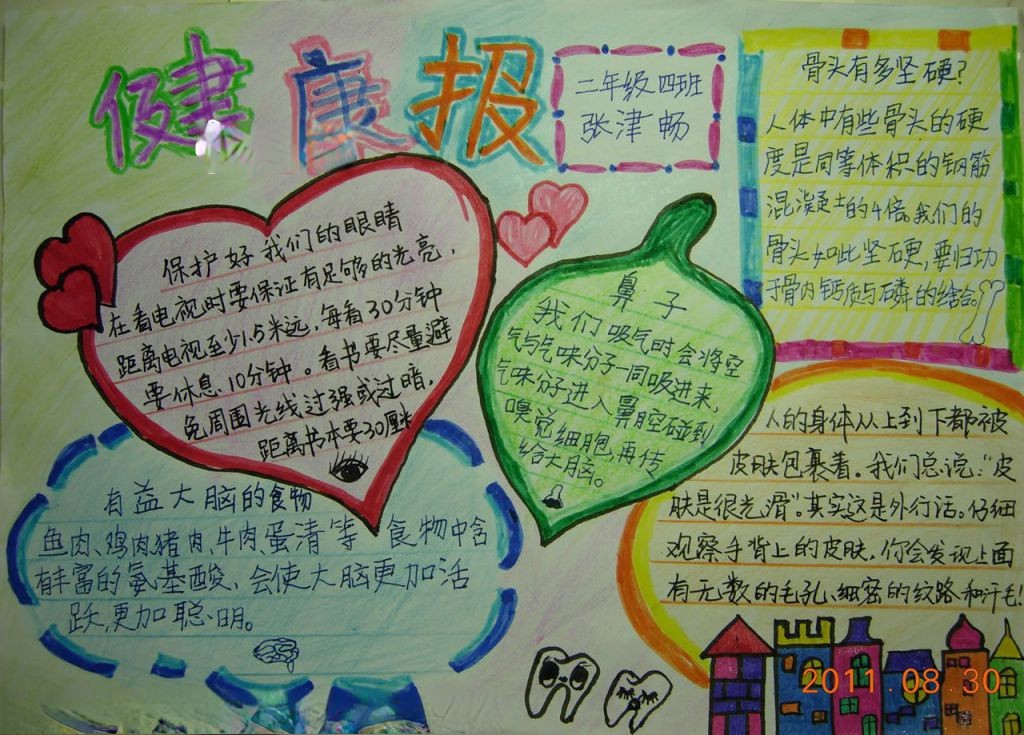 健康报
二年级四班
张津畅
骨头有多坚硬？
人体中有些骨头的硬
度是同等体积的钢筋
混凝土的4倍。我们的
骨头如此坚硬，要归功
于骨内钙质与磷的结合。
保护好我们的眼睛
在看电视时要保证有足够的光亮，
距离电视至少1.5米远，每看30分钟
要休息10分钟。看书要尽量避
免周围光线过强或过暗，
距离书本要30厘米
鼻子
我们吸气时会将空
气与气味分子一同吸进来，
气味分子进入鼻腔碰到
嗅觉细胞再传
给大脑。
有益大脑的食物
鱼肉、鸡肉猪肉、牛肉、蛋清等食物中含
有丰富的氨基酸、会使大脑更加活
跃，更加聪明。
人的身体从上到下都被
皮肤包裹着。我们总说“皮
肤是很光滑”。其实这是外行话。仔细
观察手背上的皮肤，你会发现上面
有无数的毛孔、细密的纹路和汗毛！
2011.08.30